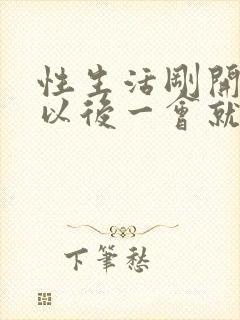 性生活剛開
以後一會就
下筆愁